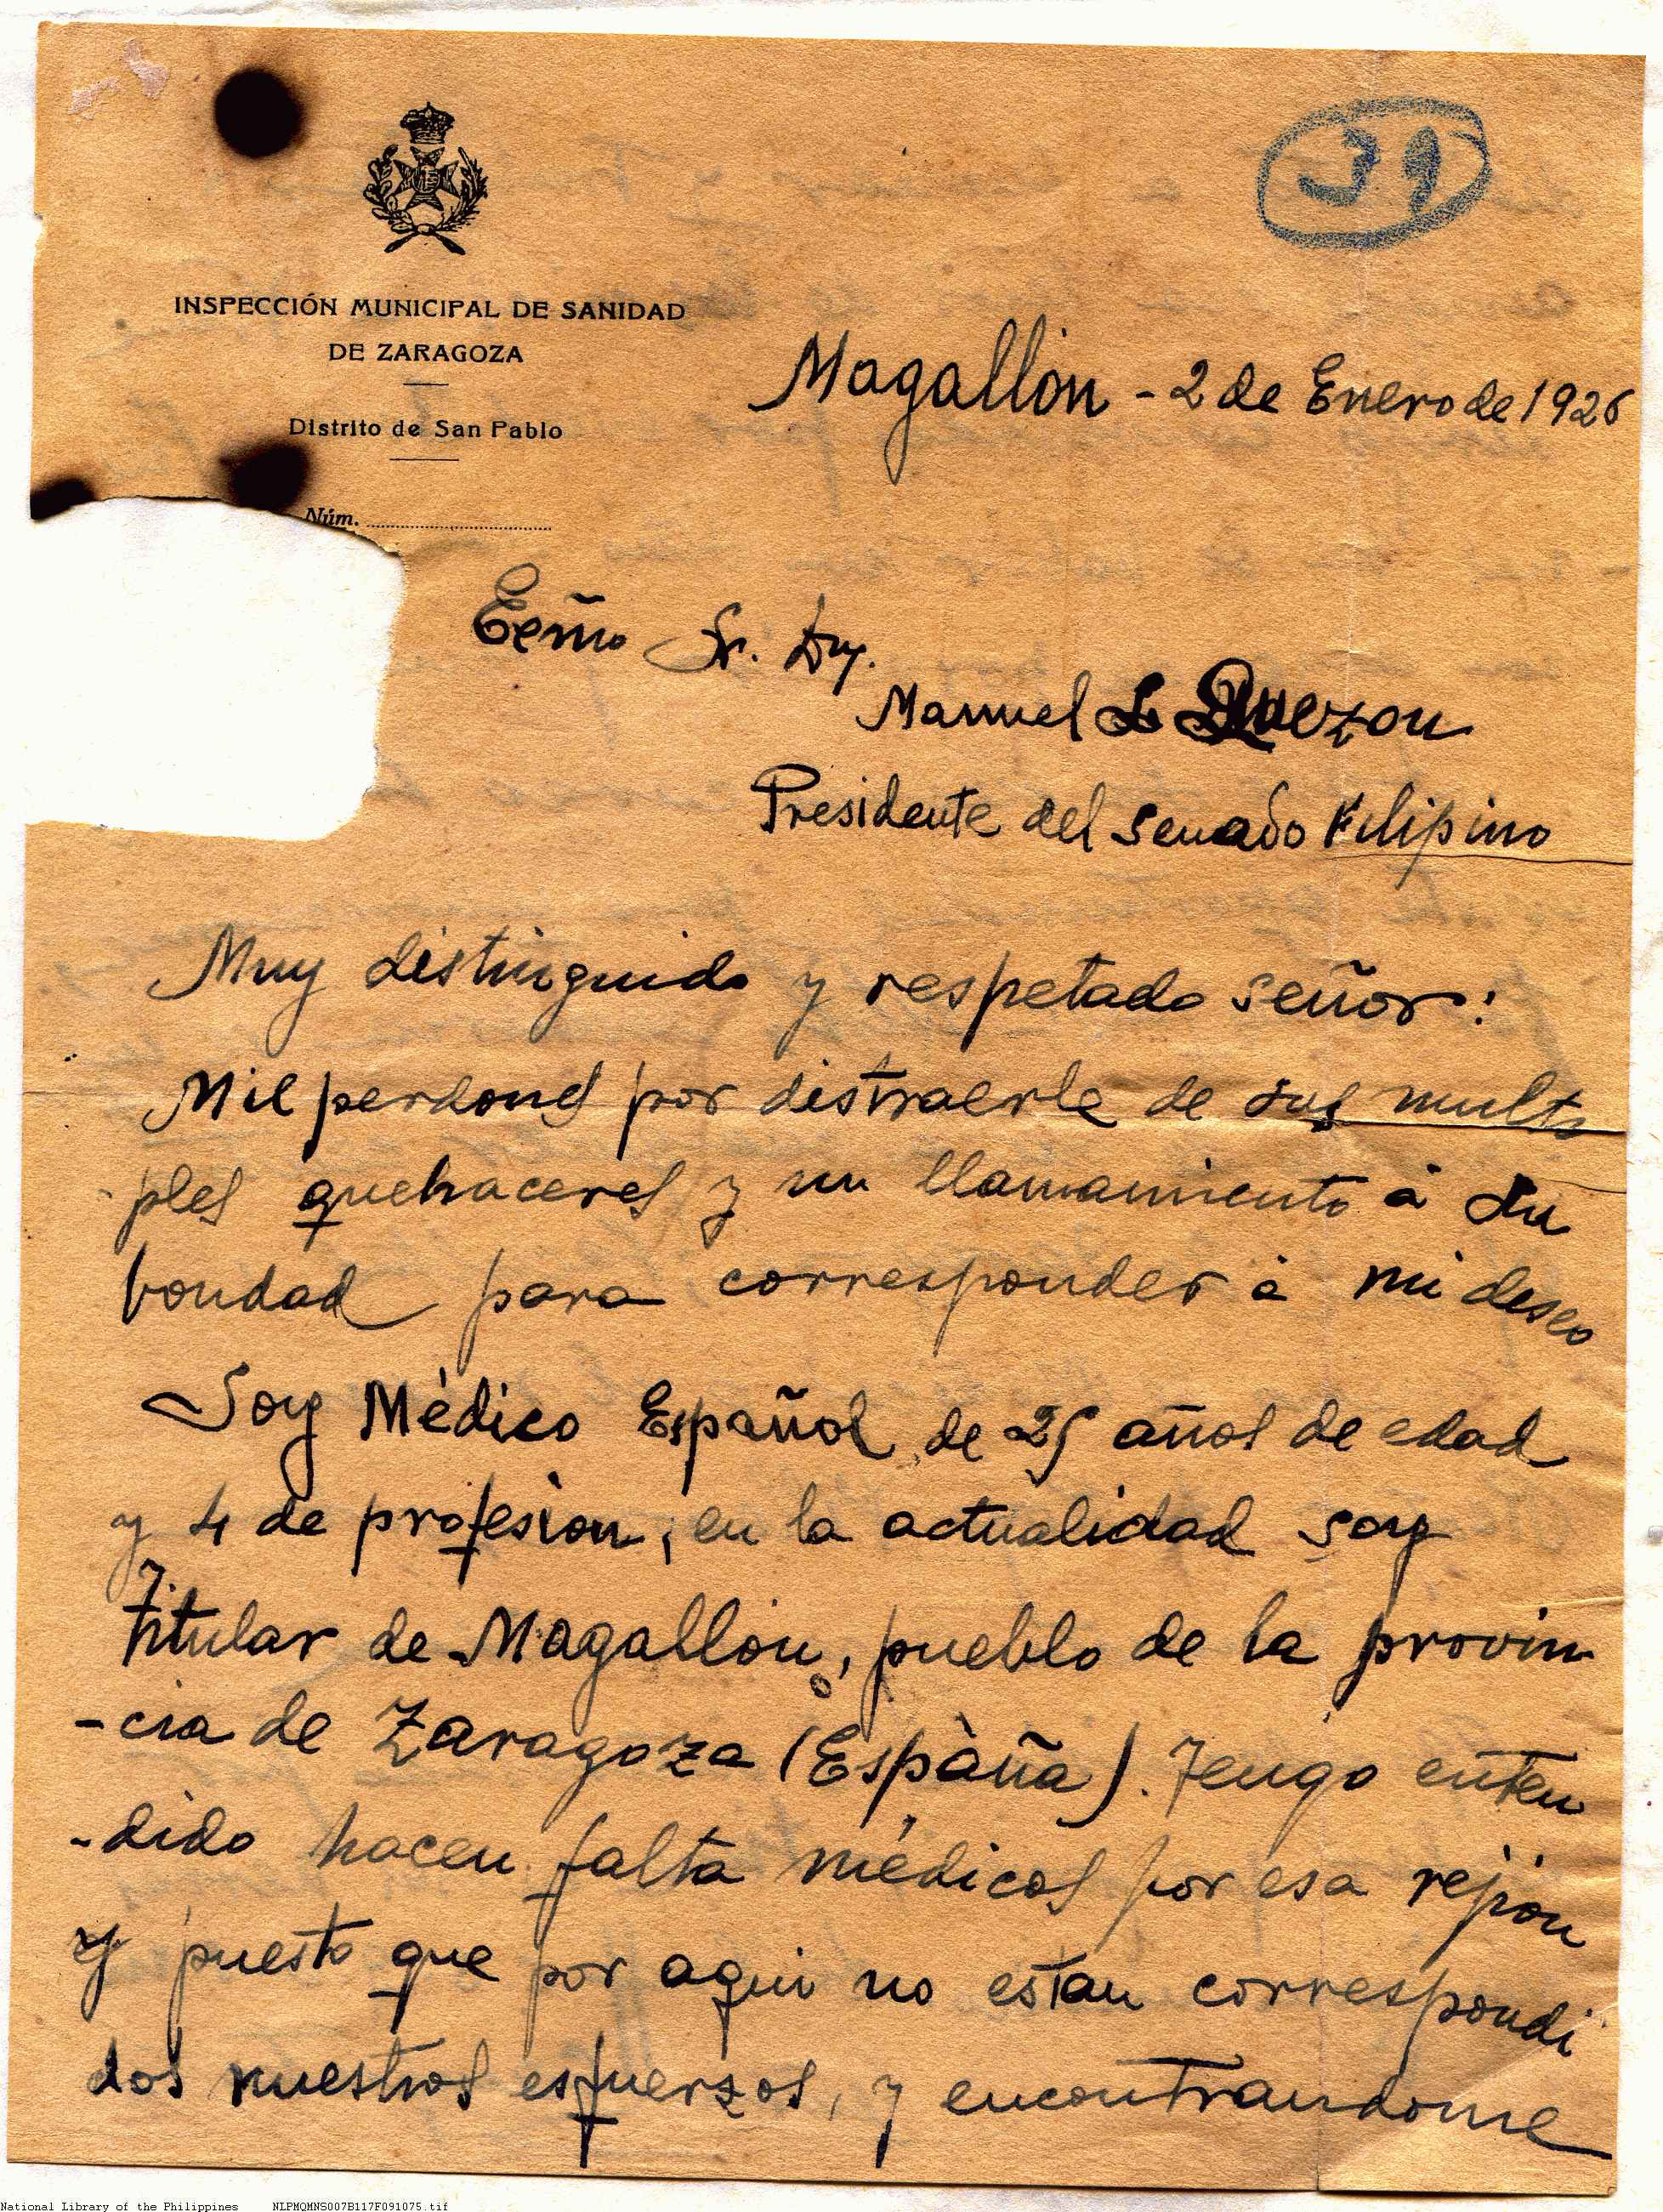 39
INSPECCIÓN MUNICIPAL DE SANIDAD
DE ZARAGOZA
Distrito de San Pablo
Núm.
Magallón - 2 de Enero de 1926
Ecmo Sr. Dn.
Manuel L Quezon
Presidente del Senado Filipino
Muy distinguido y respetado señor:
Mil perdones por distraerle de sus multi
ples quehaceres y un llamamiento á su
bondad para corresponder á mi deseo
Soy Médico Español de 25 años de edad
y 4 de profesion, en la actualidad soy
Titular de Magallon, pueblo de la provin
-cia de Zaragoza (España). Tengo enten
-dido hacen falta médicos por esa rejión
y puesto que por aqui no estan correspondi
dos nuestros esfuerzos, y encontrandome
National Library of the Philippines NLPMQMNS007B117F091075.tif